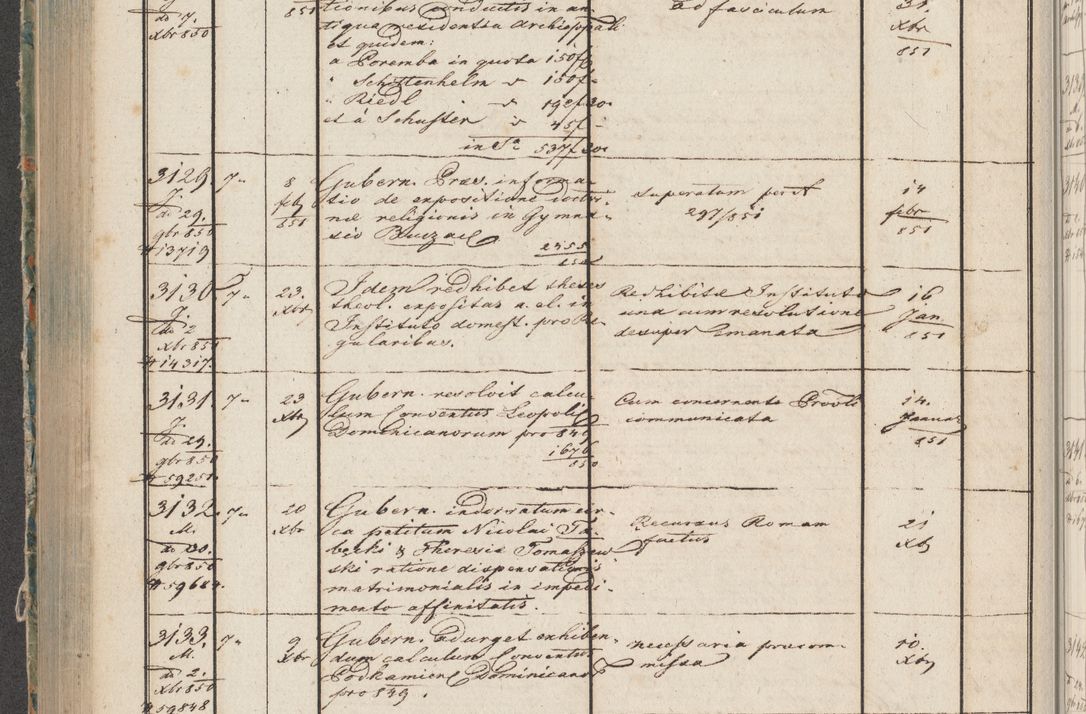 do 7.
Xbr 850
851
tionibus conductis in an-
tiqua residentia Archieppali
et quidem:
a Poremba in quota 150f
" Schottenhelm " 150f -
" Riedl " 192f 20
et a Schuster " 45f -
in Sa 537f 20
ad fasciculum
31.
Xbr
851
3129.
J.
do 29.
9br 850
# 13719
7"
8
feb
851
Gubern. Præs. informa-
tio de expositione doctri-
næ religionis in Gymna-
sio Buczacz
2355
850
Superatum per N
297/851
14
febr
851
3130
J.
do 2
Xbr 850
# 14317.
7"
23.
Xbr
Idem redhibet theses
theol. expositas a. el. in
Instituto domest. pro Re-
gularibus.
Redhibitæ Instituto
una cum resolutione
desuper emanata
16
Jan.
851
3131.
J.
do 29.
9br 850
# 59251.
7"
23
Xbr
Gubern. resolvit calcu-
lum Conventus Leopolis
Dominicanorum pro 846
1676
850
Cum concernente Provli
communicata
14.
Januar
851
3132.
M.
do 30.
9br 850
# 59684.
7"
20
Xbr
Gubern. indorsatum cir-
ca petitum Nicolai
& Theresiæ Tomaszew
ski ratione dispensationis
matrimonialis in impedi-
mento affinitatis.
Recursus Romam
factus
21
Xb
3133.
M.
do 2.
Xbr 850
# 59848
7"
9
Xbr
Gubern. adurget exhiben-
dum calculum Conventus
Podkamien Dominicano
pro 849.
necessaria præom-
missa
10.
Xb